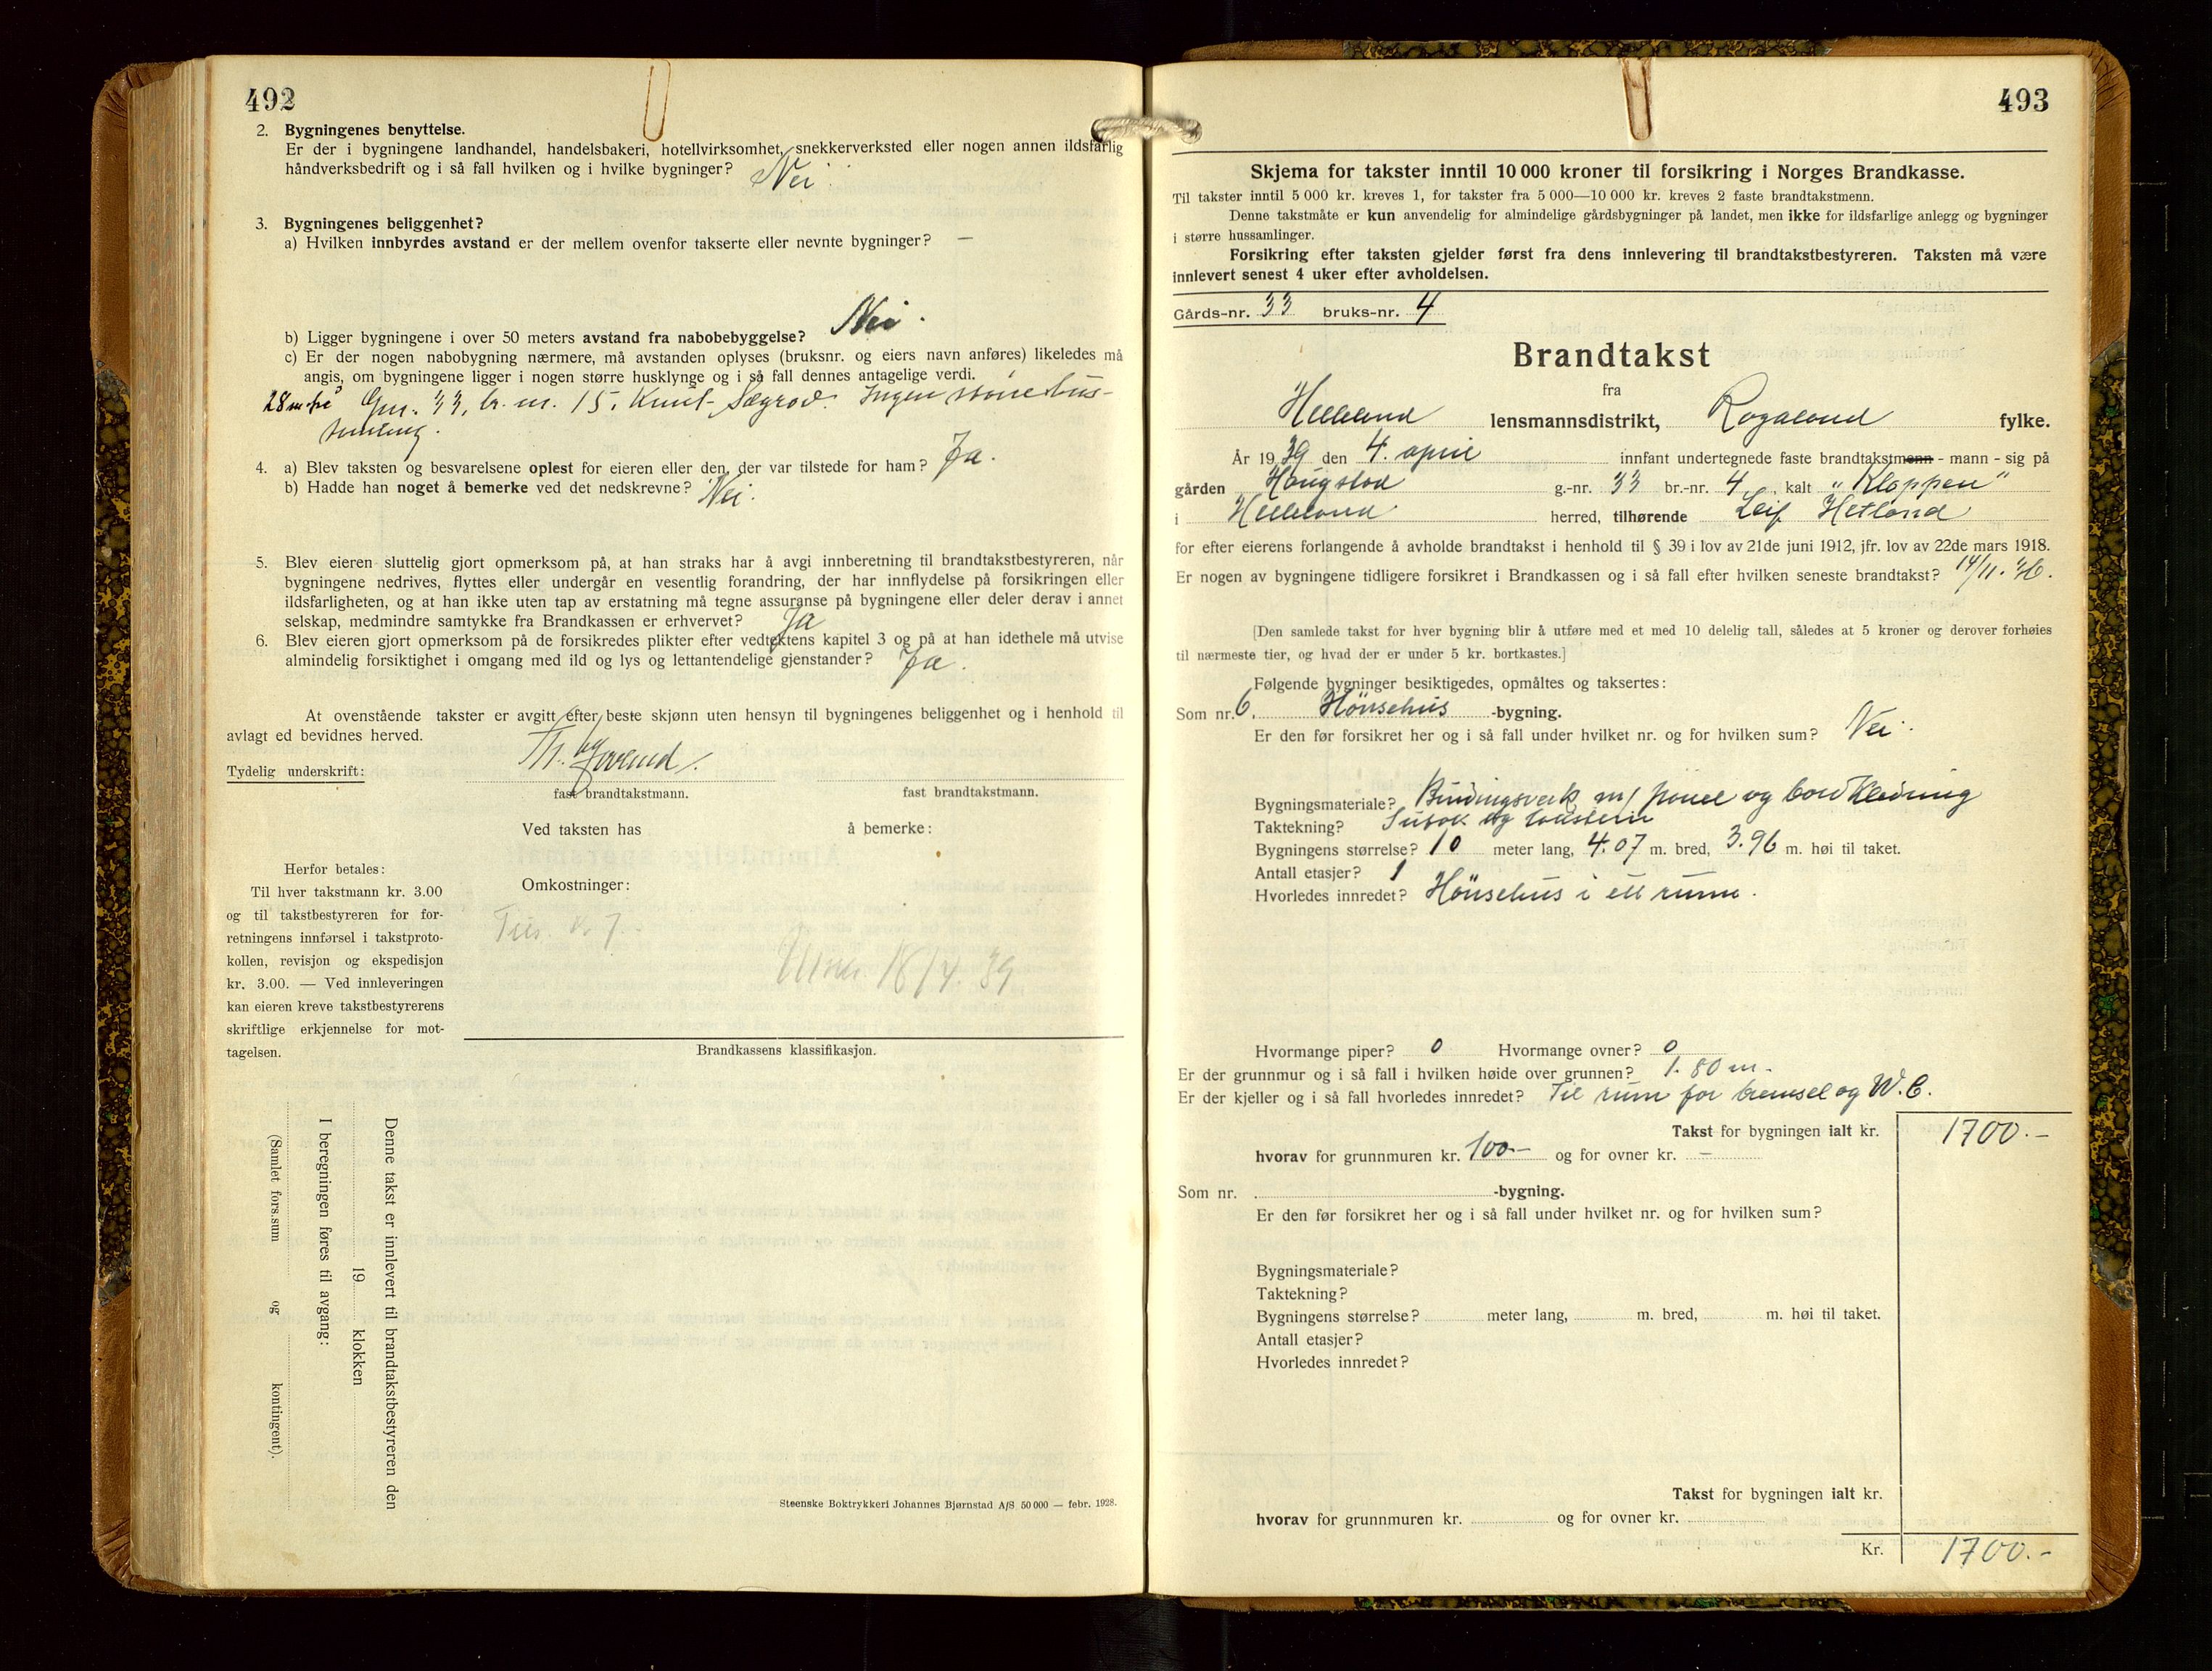 492
2. Bygningenes benyttelse.
Er der i bygningene landhandel, handelsbakeri, hotellvirksomhet, snekkerverksted eller nogen annen ildsfarlig
håndverksbedrift og i så fall hvilken og i hvilke bygninger? Nei.
3. Bygningenes beliggenhet?
a) Hvilken innbyrdes avstand er der mellem ovenfor takserte eller nevnte bygninger? —
b) Ligger bygningene i over 50 meters avstand fra nabobebyggelse? Nei.
c) Er der nogen nabobygning nærmere, må avstanden oplyses (bruksnr. og eiers navn anføres) likeledes må
angis, om bygningene ligger i nogen større husklynge og i så fall dennes antagelige verdi.
28 m fra Gnr. 33, br. nr. 15, Knut Sægrov. Ingen större hus-
samling.
4. a) Blev taksten og besvarelsene oplest for eieren eller den, der var tilstede for ham? Ja.
b) Hadde han noget å bemerke ved det nedskrevne? Nei.
5. Blev eieren sluttelig gjort opmerksom på, at han straks har å avgi innberetning til brandtakstbestyreren, når
bygningene nedrives, flyttes eller undergår en vesentlig forandring, der har innflydelse på forsikringen eller
ildsfarligheten, og at han ikke uten tap av erstatning må tegne assuranse på bygningene eller deler derav i annet
selskap, medmindre samtykke fra Brandkassen er erhvervet? Ja
6. Blev eieren gjort opmerksom på de forsikredes plikter efter vedtektens kapitel 3 og på at han idethele må utvise
almindelig forsiktighet i omgang med ild og lys og lettantendelige gjenstander? Ja.
At ovenstående takster er avgitt efter beste skjønn uten hensyn til bygningenes beliggenhet og i henhold til
avlagt ed bevidnes herved.
Tydelig underskrift:
fast brandtakstmann. fast brandtakstmann.
Ved taksten has å bemerke:
Omkostninger:
18/4. 39
Herfor betales:
Til hver takstmann kr. 3.00
og til takstbestyreren for for-
retningens innførsel i takstproto-
kollen, revisjon og ekspedisjon
kr. 3.00. — Ved innleveringen
kan eieren kreve takstbestyrerens
skriftlige erkjennelse for mot-
tagelsen.
Brandkassens klassifikasjon.
Denne takst er innlevert til brandtakstbestyreren den
19 klokken
I beregningen føres til avgang:
(Samlet fors.sum og kontingent).
Steenske Boktrykkeri Johannes Bjørnstad A/S. 50 000 — febr. 1928.
493
Skjema for takster inntil 10 000 kroner til forsikring i Norges Brandkasse.
Til takster inntil 5 000 kr. kreves 1, for takster fra 5 000—10 000 kr. kreves 2 faste brandtakstmenn.
Denne takstmåte er kun anvendelig for almindelige gårdsbygninger på landet, men ikke for ildsfarlige anlegg og bygninger
i større hussamlinger.
Forsikring efter taksten gjelder først fra dens innlevering til brandtakstbestyreren. Taksten må være
innlevert senest 4 uker efter avholdelsen.
Gårds-nr. 33 bruks-nr. 4
Brandtakst
fra
Helleland lensmannsdistrikt, Rogaland fylke.
År 1939 den 4. april innfant undertegnede faste brandtakstmenn - mann - sig på
gården Haugstad g.-nr. 33 br.-nr. 4, kalt "Kloppen"
i Helleland herred, tilhørende Leif Hetland
for efter eierens forlangende å avholde brandtakst i henhold til § 39 i lov av 21de juni 1912, jfr. lov av 22de mars 1918.
Er nogen av bygningene tidligere forsikret i Brandkassen og i så fall efter hvilken seneste brandtakst? 14/11. 36.
[Den samlede takst for hver bygning blir å utføre med et med 10 delelig tall, således at 5 kroner og derover forhøies
til nærmeste tier, og hvad der er under 5 kr. bortkastes.]
Følgende bygninger besiktigedes, opmåltes og taksertes:
Som nr. 6. Hönsehus -bygning.
Er den før forsikret her og i så fall under hvilket nr. og for hvilken sum? Nei.
Bygningsmateriale? Bindingsverk m/ panel og bordkledning
Taktekning? Sutak og taksten
Bygningens størrelse? 10 meter lang, 4.07 m. bred, 3.96 m. høi til taket.
Antall etasjer? 1
Hvorledes innredet? Hönsehus i ett rum.
Hvormange piper? 0 Hvormange ovner? 0
Er der grunnmur og i så fall i hvilken høide over grunnen? 1.80 m.
Er der kjeller og i så fall hvorledes innredet? Til rum for brensel og W.C.
Takst for bygningen ialt kr. 1700.-
hvorav for grunnmuren kr. 100.- og for ovner kr. —
Som nr. -bygning.
Er den før forsikret her og i så fall under hvilket nr. og for hvilken sum?
Bygningsmateriale?
Taktekning?
Bygningens størrelse? meter lang, m. bred, m. høi til taket.
Antall etasjer?
Hvorledes innredet?
Takst for bygningen ialt kr.
hvorav for grunnmuren kr. og for ovner kr.
Kr. 1700.-